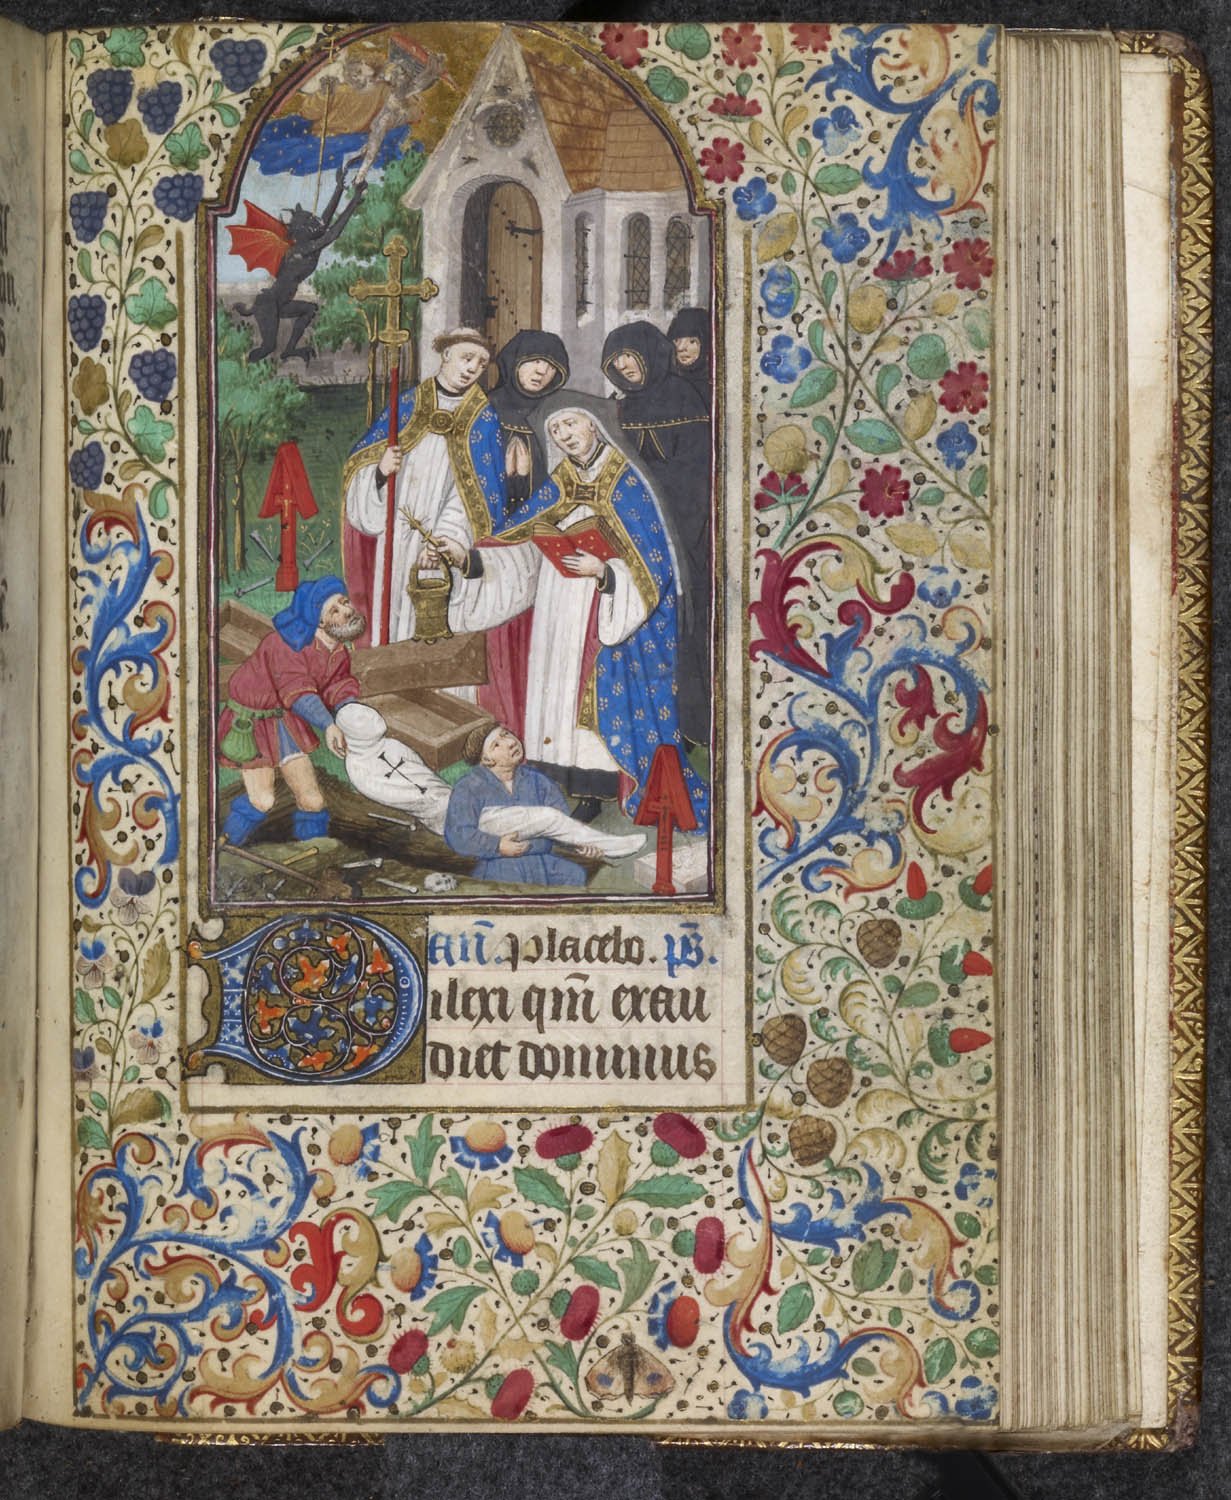 añ. Placebo. p̃s.
Dilexi qm̃ exau
diet dominus